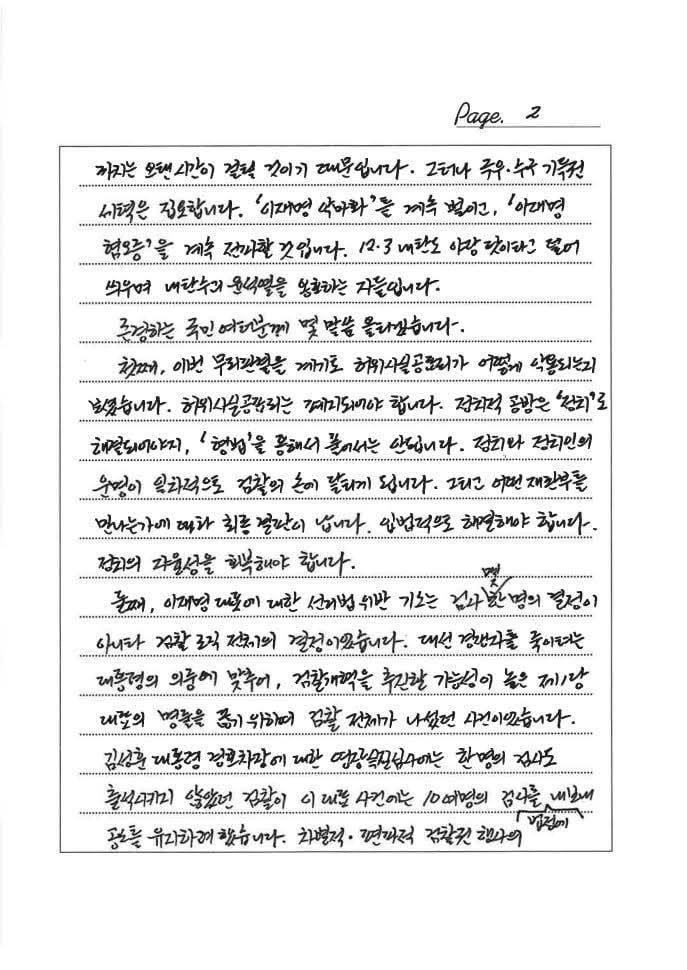 Page. 2
까지는 오랜 시간이 걸릴 것이기 때문입니다. 그러나 극우·수구 기득권
세력은 집요합니다. '이재명 악마화'를 계속 벌이고, '이재명
혐오증'을 계속 전파할 것입니다. 12.3 내란도 야당 탓이라고 덮어
씌우며 내란수괴 윤석열을 옹호하는 자들입니다.
존경하는 국민 여러분께 몇 말씀 올리겠습니다.
첫째, 이번 무죄판결을 계기로 허위사실공표죄가 어떻게 악용되는지
보았습니다. 허위사실공표죄는 폐지되어야 합니다. 정치적 공방은 '정치'로
해결되어야지, '형법'을 통해서 풀어서는 안됩니다. 정치와 정치인의
운명이 일차적으로 검찰의 손에 달리게 됩니다. 그리고 어떤 재판부를
만나는가에 따라 최종 결단이 납니다. 입법적으로 해결해야 합니다.
정치의 자율성을 회복해야 합니다.
둘째, 이재명 대표에 대한 선거법 위반 기소는 검사 몇 명의 결정이
아니라 검찰 조직 전체의 결정이었습니다. 대선 경쟁자를 죽이려는
대통령의 의중에 맞추어, 검찰개혁을 추진할 가능성이 높은 제1당
대표의 명줄을 끊기 위하여 검찰 전체가 나섰던 사건이었습니다.
김성훈 대통령 경호차장에 대한 영장실질심사에는 한 명의 검사도
출석시키지 않았던 검찰이 이 대표 사건에는 10여명의 검사를 법정에 내보내
공소를 유지하려 했습니다. 차별적·편파적 검찰권 행사의